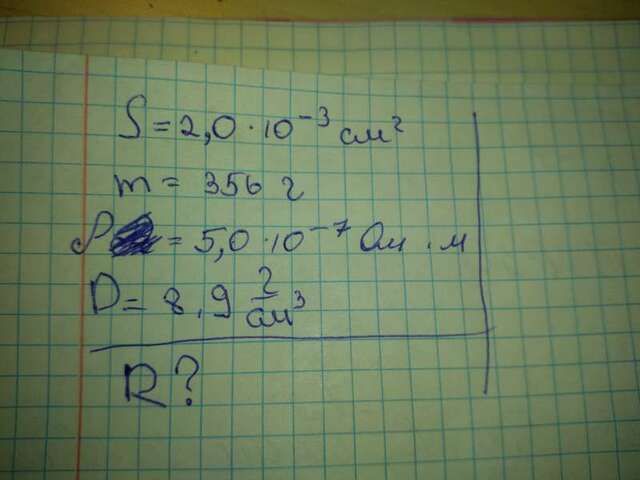 S = 2,0 · 10⁻³ см²
m = 356 г
ρ = 5,0 · 10⁻⁷ Ом · м
D = 8,9 г/см³
R ?